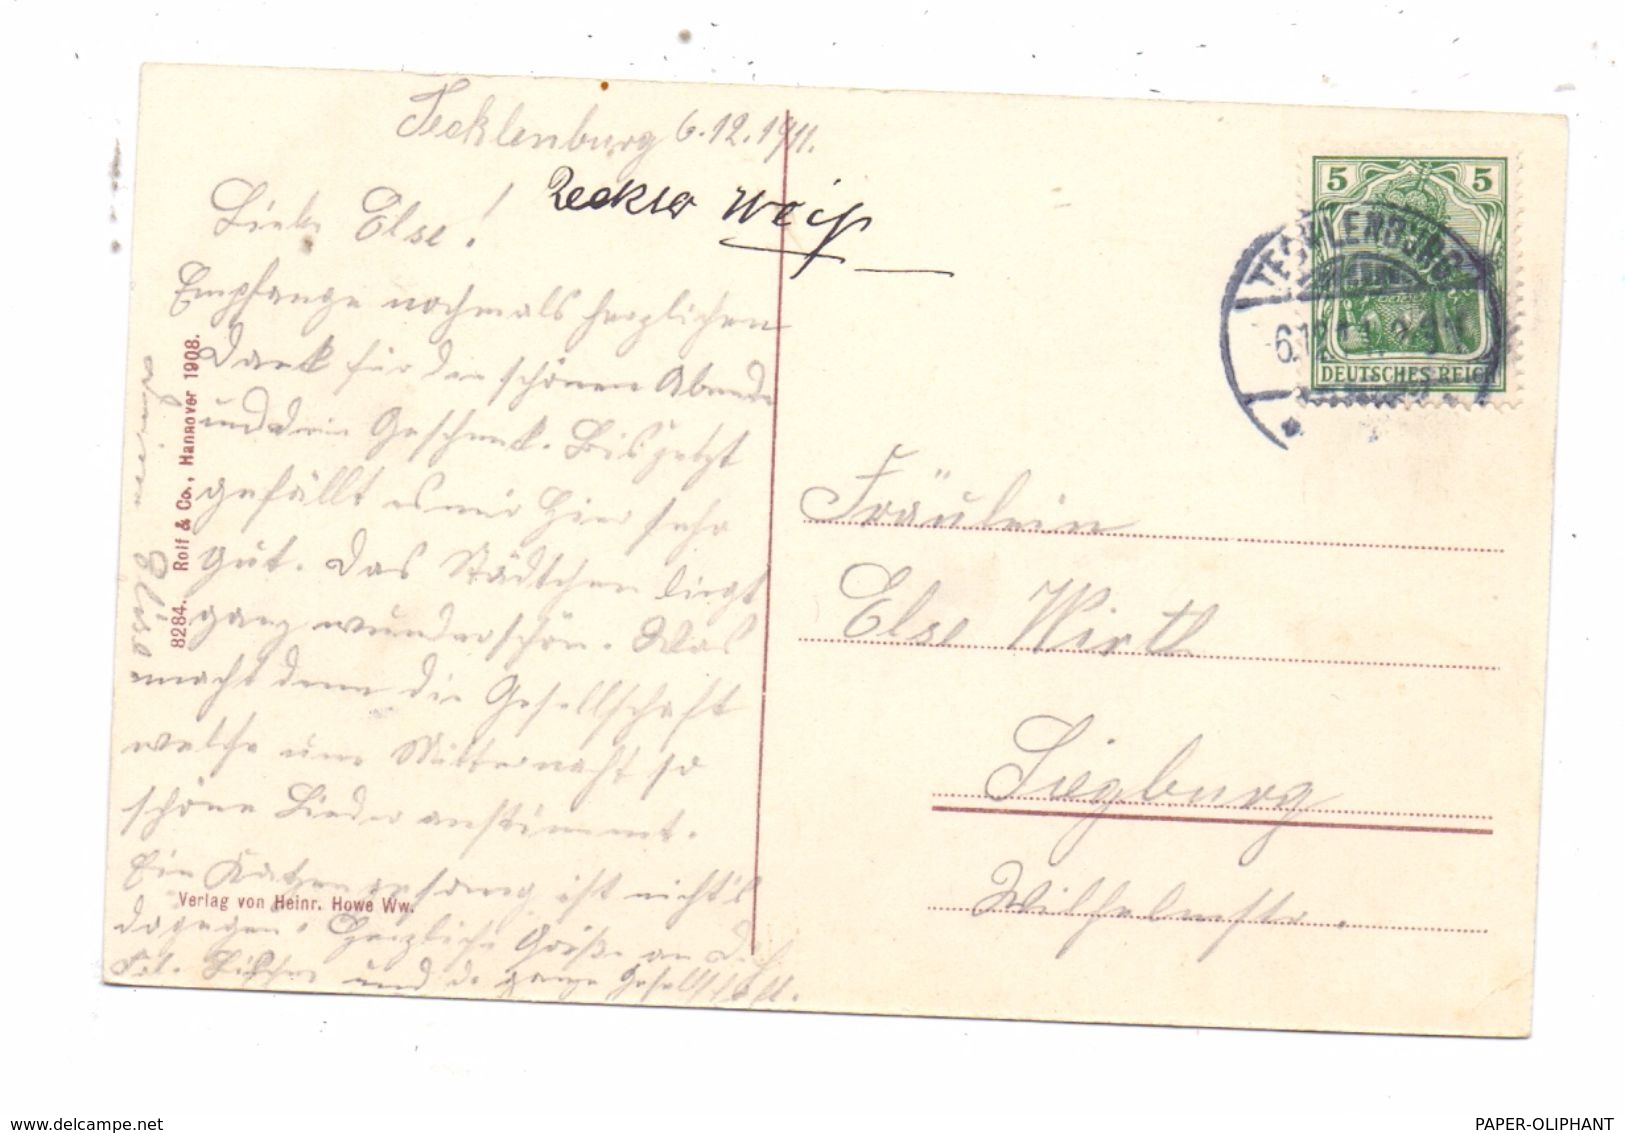 Tecklenburg 6.12.1911.
Liebe Else!
Empfange nochmals herzlichen
Dank für den schönen Abend
und dein Geschenk. Bis jetzt
gefällt es mir hier sehr
gut. Das Städtchen liegt
ganz wunderschön. Was
macht denn die Gesellschaft
welche um Mitternacht so
schöne Lieder anstimmt.
Ein Katzengesang ist nichts
dagegen. Herzliche Grüße an Dich
Frl. und die ganze Gesellschaft.
8284. Rolf & Co., Hannover 1908.
Verlag von Heinr. Howe Ww.
5 5
DEUTSCHES REICH
TECKLENBURG
6.12.11
Fräulein
Else Wirth
Siegburg
Wilhelmstr.
www.delcampe.net
PAPER-OLIPHANT